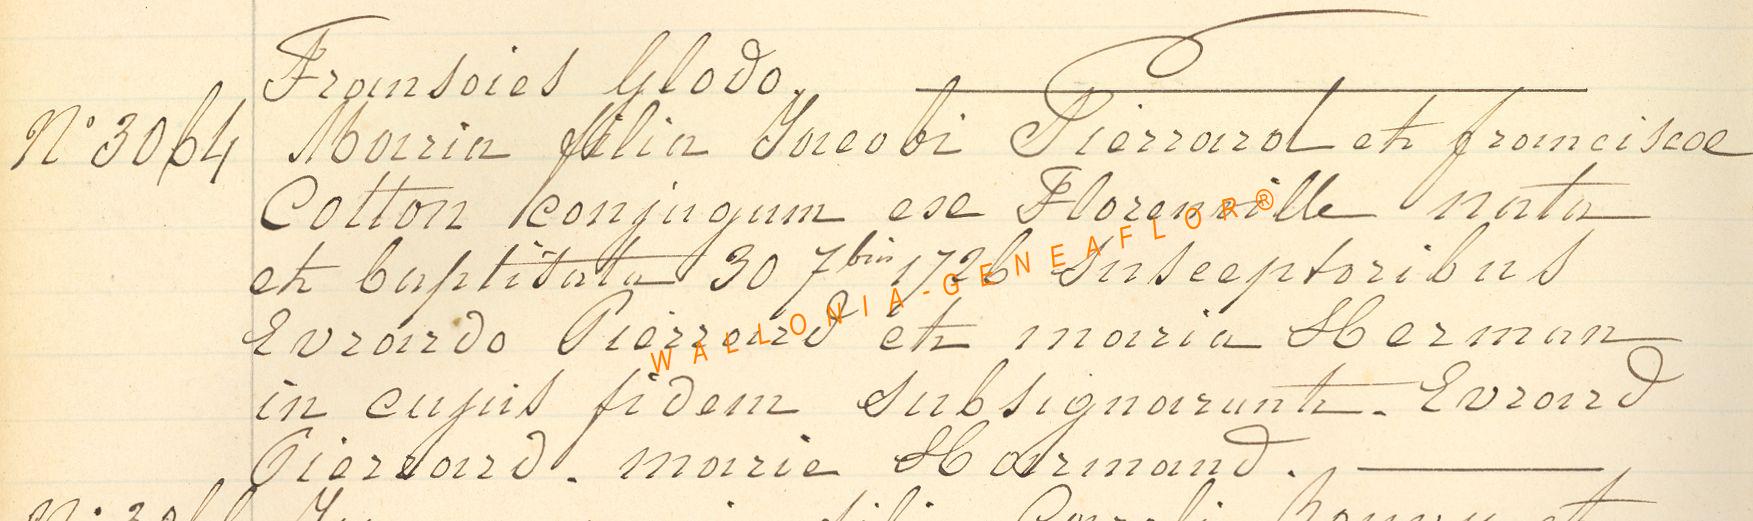 Fransoies Glodo.
N° 3064 Maria filia Jacobi Pierrard et franciscae
Cotton conjugum exe Florenville nata
et baptisata 30 7bris 1726 Susceptoribus
Evrardo Pierrard et maria Herman
in cujus fidem subsignarunt. Evrard
Pierrard. marie Harmand.
WALLONIA-GENEAFLOR®